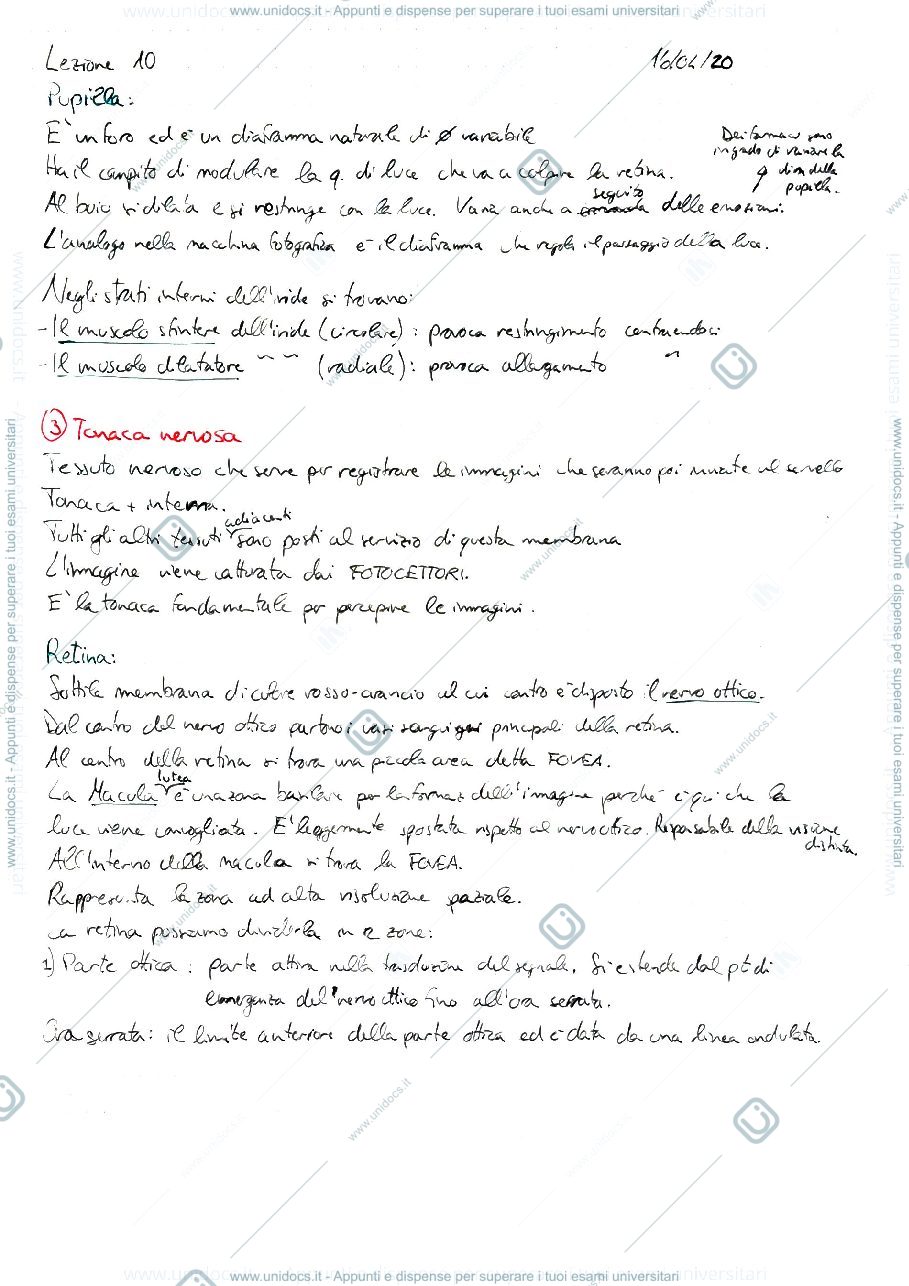 www.unidocs.it - Appunti e dispense per superare i tuoi esami universitari
Lezione 10 16/04/20
Pupilla:
E' un foro ed è un diaframma naturale di ø variabile
Dei farmaci sono
in grado di variare la
dim della
pupilla.
Ha il compito di modulare la q. di luce che va a colpire la retina.
Al buio si dilata e si restringe con la luce. Varia anche a seguito delle emozioni.
L'analogo nella macchina fotografica è il diaframma che regola il passaggio della luce.
Negli strati interni dell'iride si trovano:
- Il muscolo sfintere dell'iride (circolare): provoca restringimento contraendosi
- Il muscolo dilatatore ~ ~ (radiale): provoca allargamento ~
③ Tonaca nervosa
Tessuto nervoso che serve per registrare le immagini che saranno poi inviate al cervello
Tonaca + interna.
Tutti gli altri tessuti adiacenti sono posti al servizio di questa membrana
L'immagine viene catturata dai FOTOCETTORI.
E' la tonaca fondamentale per percepire le immagini.
Retina:
Sottile membrana di colore rosso-arancio al cui centro è disposto il nervo ottico.
Dal centro del nervo ottico partono i vasi sanguigni principali della retina.
Al centro della retina si trova una piccola area detta FOVEA.
La Macula lutea è una zona basilare per la formaz dell'immagine perché è qui che la
luce viene convogliata. E' leggermente spostata rispetto al nervo ottico. Responsabile della visione
distinta.
All'interno della macula si trova la FOVEA.
Rappresenta la zona ad alta risoluzione spaziale.
La retina possiamo dividerla in 2 zone:
1) Parte ottica: parte attiva nella trasduzione del segnale. Si estende dal pt di
emergenza del nervo ottico fino all'ora serrata.
Ora serrata: il limite anteriore della parte ottica ed è data da una linea ondulata.
www.unidocs.it - Appunti e dispense per superare i tuoi esami universitari